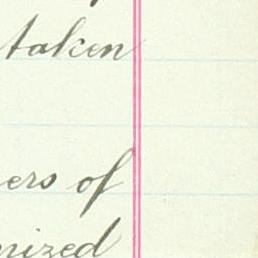 taken
ers of
nized